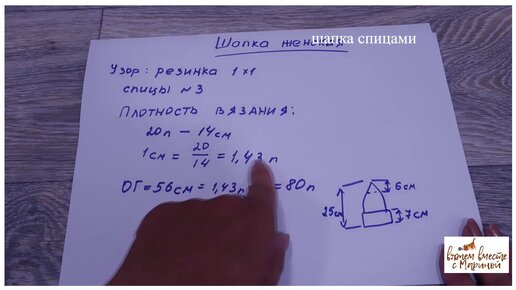 Шапка женская
шапка спицами
Узор: резинка 1×1
спицы №3
Плотность вязания:
20п – 14см
1см = 20/14 = 1,43п
ОГ=56см = 1,43п = 80п
6см
25см
7см
вяжем вместе
с Мариной